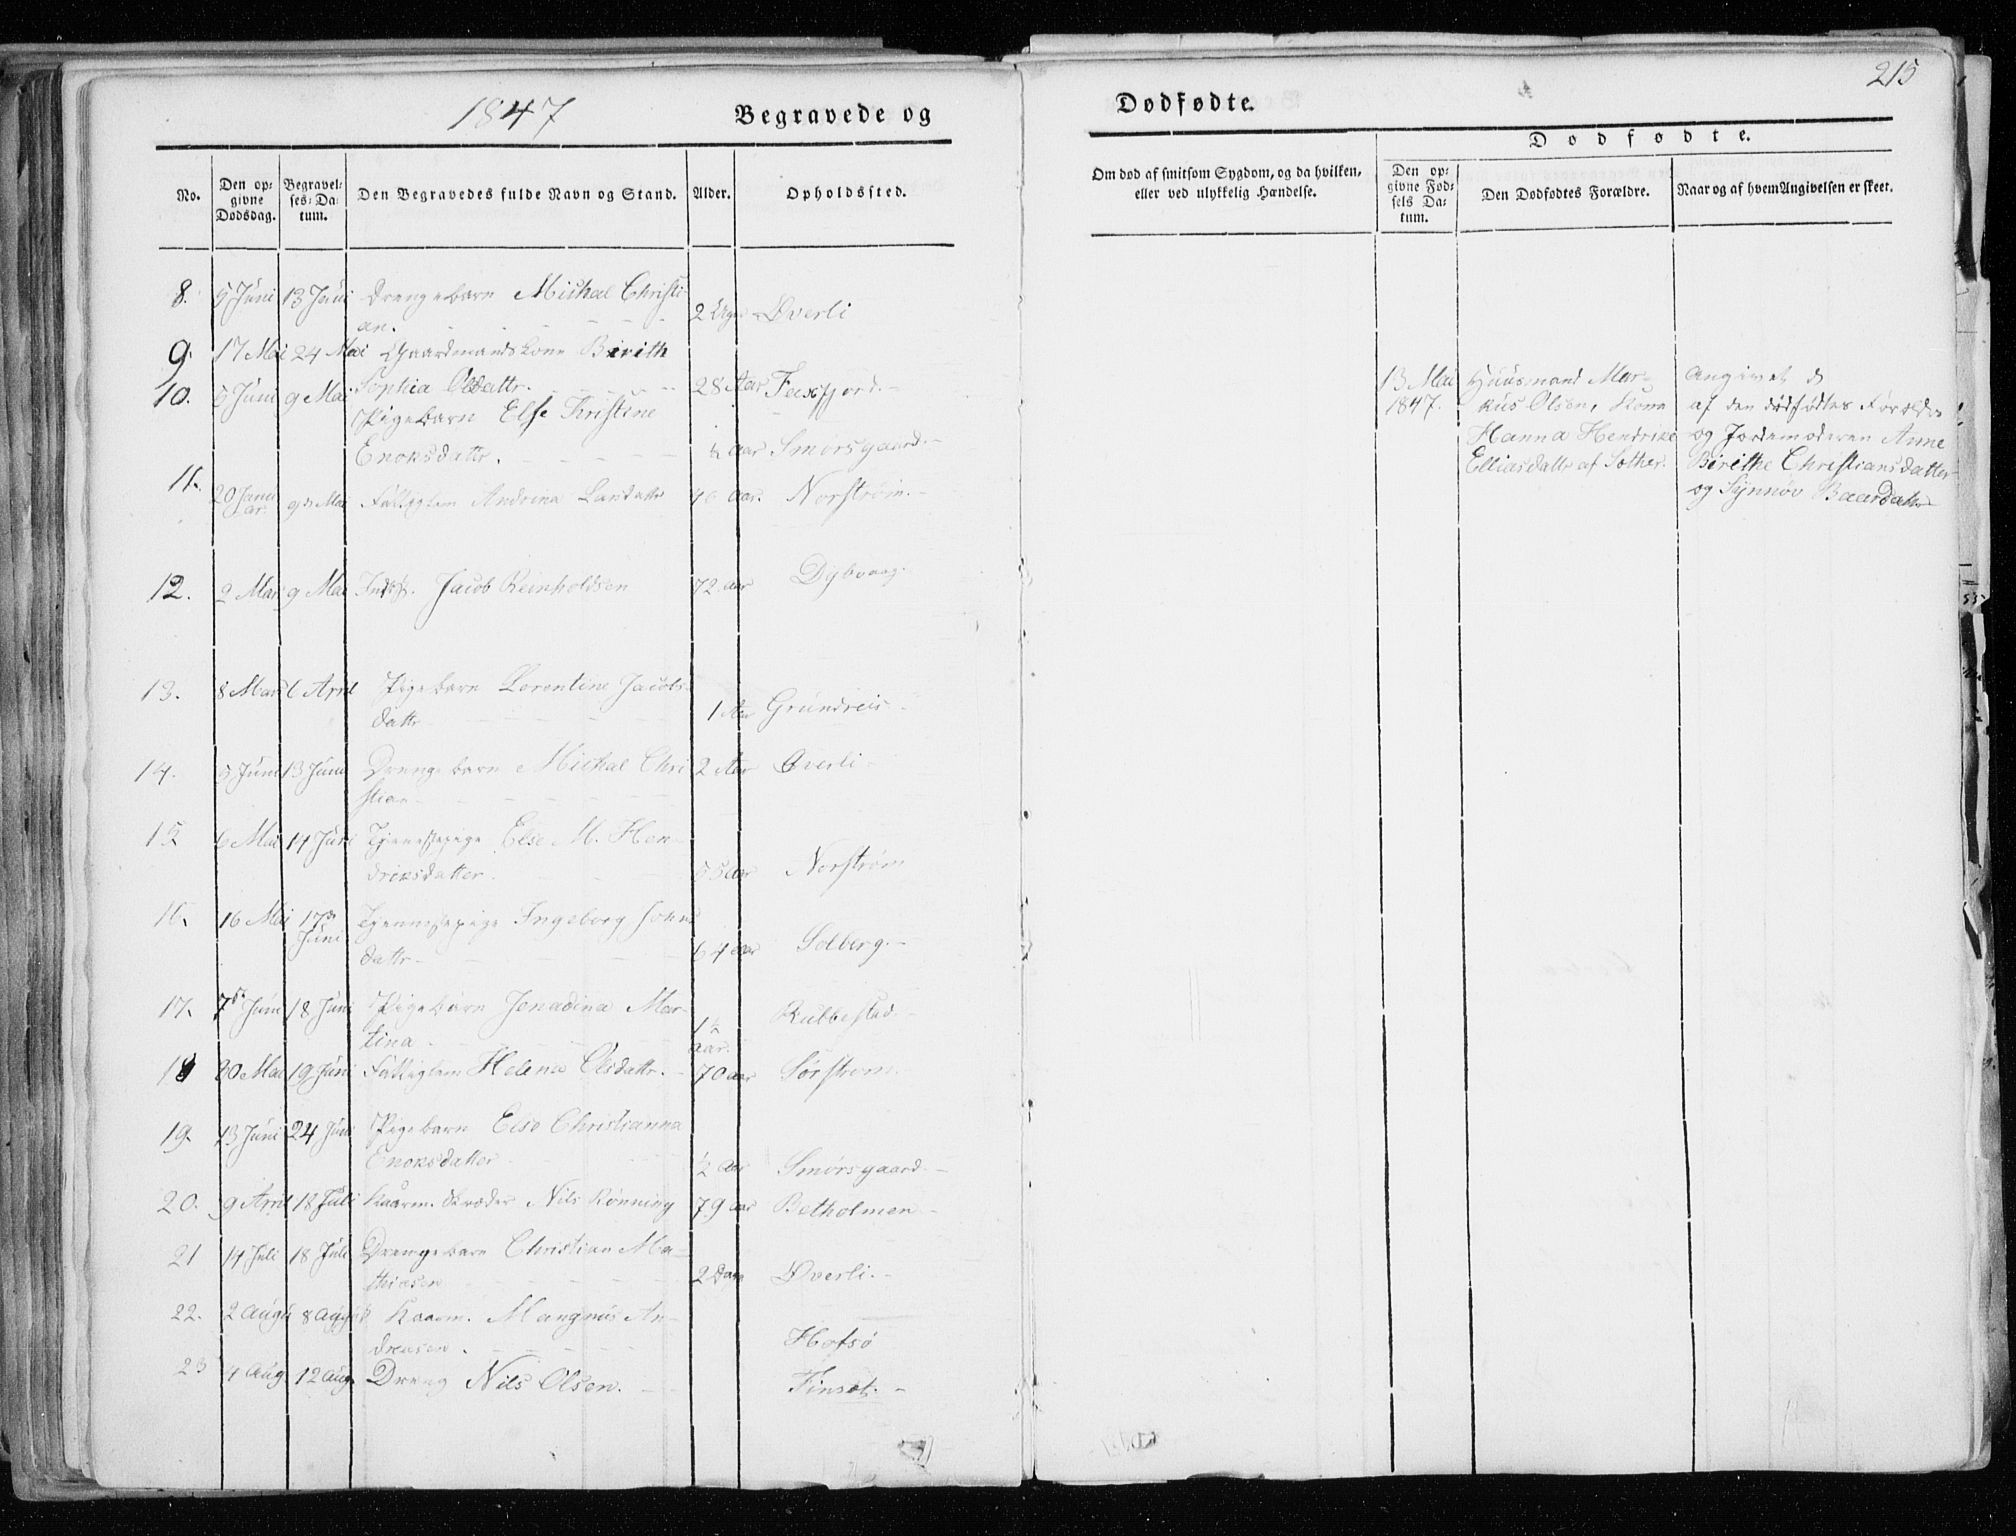 1847 Begravede og
No. Den op-givne Dødsdag. Begravel-ses-Da-tum. Den Begravedes fulde Navn og Stand. Alder. Opholdssted.
8. 5 Juni 13 Juni Drengebarn Michal Christi-
an. 2 Øverli
9. 17 Mai 24 Mai Gaardmandskone Birith
Sophia Olsdattr. 28 Aar
10. 5 Juni 9 Mai Pigebarn Else Kristine
Enoksdattr. ½ Aar Smørsgaard.
11. 20 Janu
ar. 9de Mai Fattiglem Andrina Larsdattr Aar. Norstrøm.
12. 2 Mar 9 Mai Jacob Reinholdsen 72 Aar Dybvaag.
13. 8 Mars 6 April Pigebarn Lorentine Jacobs-
dattr 1 Aar Grundreis
14. 5 Juni 13 Juni Drengebarn Michal Chri
stian 2 Aar Øverli
15 6 Mai 14 Juni Tjenestepige Else M. Hen-
driksdatter. 55 Aar Norstrøm
16. 16 Mai 17de
Juni Tjennestepige Ingeborg Johns
dattr 64 Aar Solberg.
17. 7de Juni 18 Juni Pigebarn Jenadina Mar-
tina 1½
Aar. Kubbestad
18 30 Mai 19 Juni Fattiglem Helena Olsdattr. 70 Aar Sørstrøm.
19. 13 Juni 24 Juni Pigebarn Else Christianna
Enoksdatter ½ Aar Smørsgaard.
20. 9 April 18 Juli Kaarm. Skræder Nils Rønning 79 Aar Betholmen
21 14 Juli 18 Juli Drengebarn Christian Ma-
thiasen 2 Dage Øverli.
22. 2 Augu 8 August Kaarm. Mangnus An-
dreasen. Hofsø
23 4 Aug 12 Aug. Dreng Nils Olsen. Finsæt.
215
Dødfødte.
Dødfødte.
Om død af smitsom Sygdom, og da hvilken, eller ved ulykkelig Hændelse. Den op-givne Fød-sels Da-tum. Den Dødfødtes Forældre. Naar og af hvem Angivelsen er skeet.
13 Mai Huusmand Mar- Angivet
1847. kus Olsen, Kone af den dødfødtes Forældre
Hanna Hendrike og Jordemoderen Anne
Elliasdattr af Birithe Christiansdatter
og Synnøv Baardattr